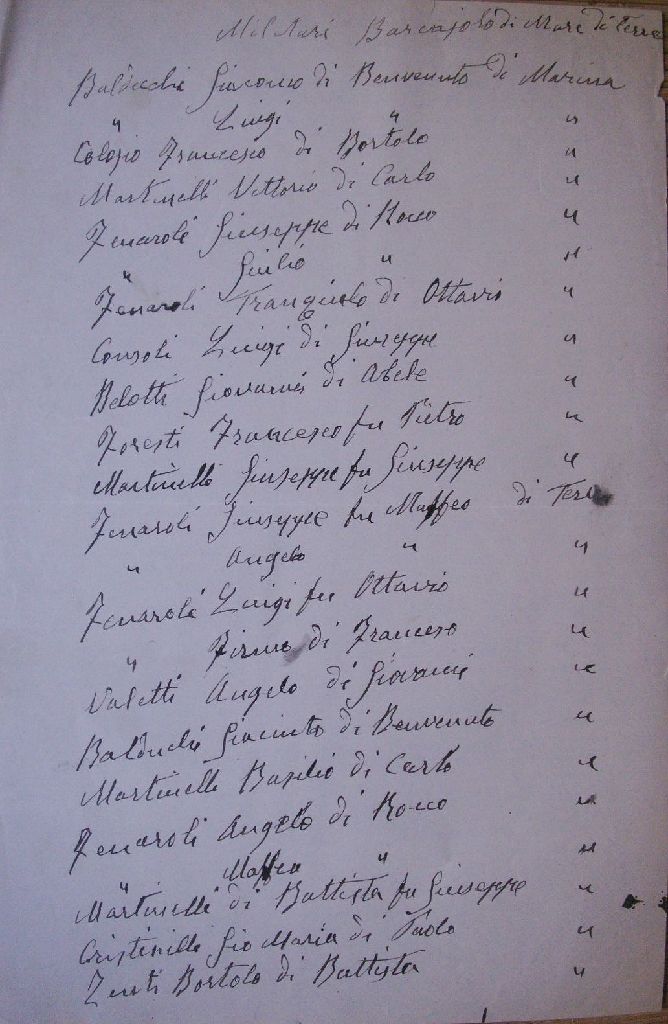 Militari di Mare di Terra
Balducchi Giacomo di Benvenuto di Marina
" Luigi " "
Colosio Francesco di Bortolo "
Martinelli Vittorio di Carlo "
Fenaroli Giuseppe di Rocco "
" Giulio " "
Fenaroli Tranquilo di Ottavio "
Consoli Luigi di Giuseppe "
Belotti Giovanni di Abele "
Foresti Francesco fu Pietro "
Martinelli Giuseppe fu Giuseppe "
Fenaroli Giuseppe fu Maffeo di Terra
" Angelo " "
Fenaroli Luigi fu Ottavio "
" Firmo di Francesco "
Valetti Angelo di Giovanni "
Balduchi Giacinto di Benvenuto "
Martinelli Basilio di Carlo "
Fenaroli Angelo di Rocco "
" Maffeo " "
Martinelli di Battista fu Giuseppe "
Cristinelli Gio Maria di Paolo "
Zenti Bortolo di Battista "